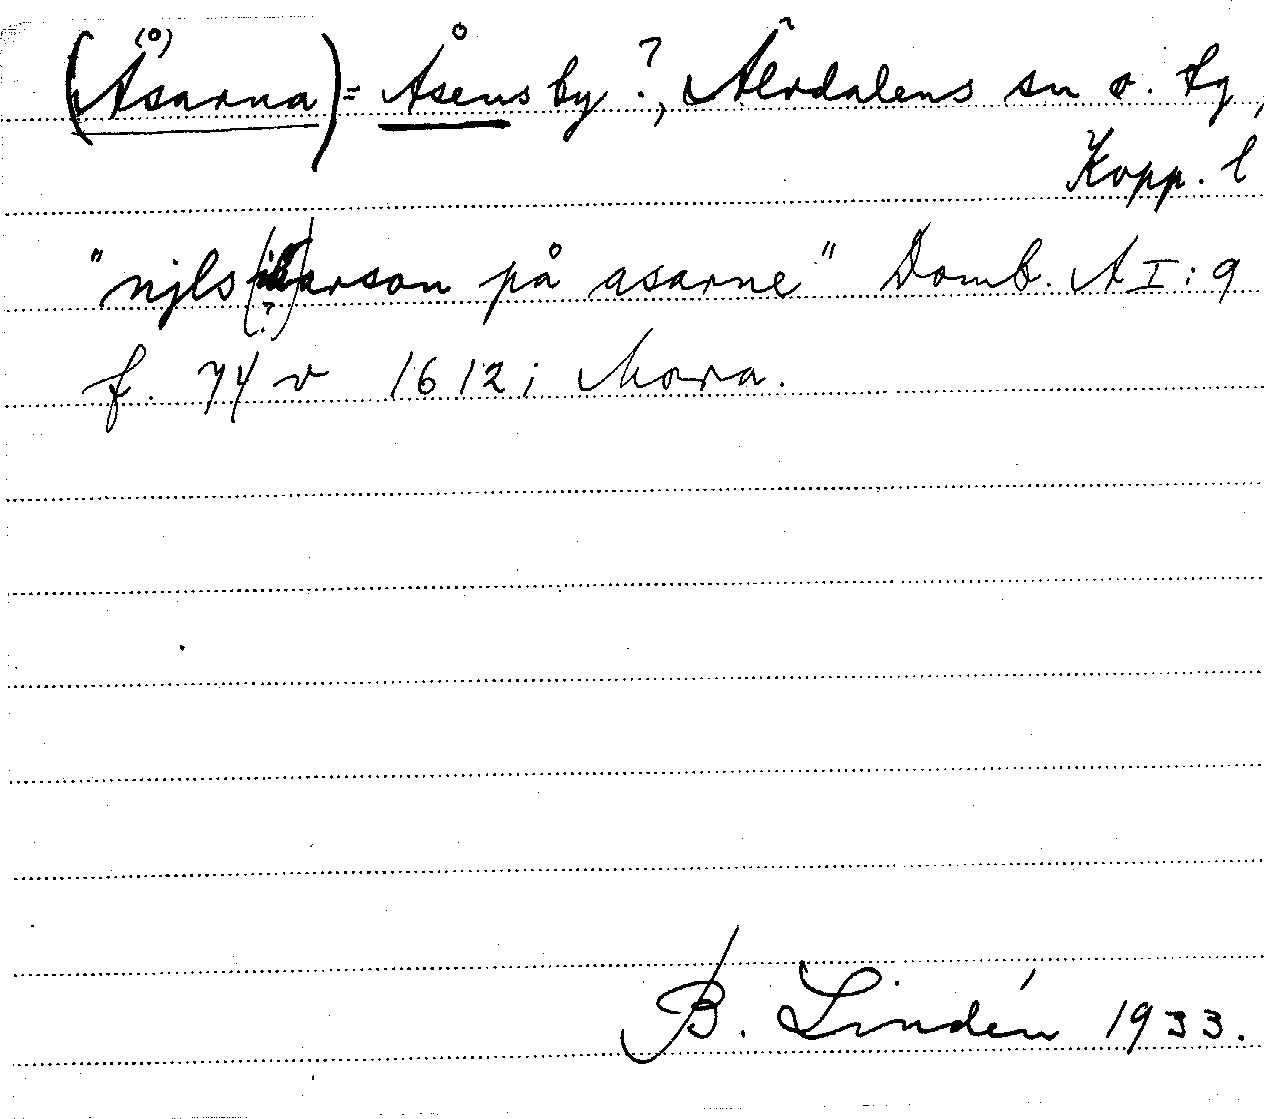 (Åsarna) = Åsens by?, Älvdalens sn o. tg,
Kopp. l
"njls arson på asarne" Domb. A I: 9
f. 74 v 1612 i Mora.
B. Lindén 1933.